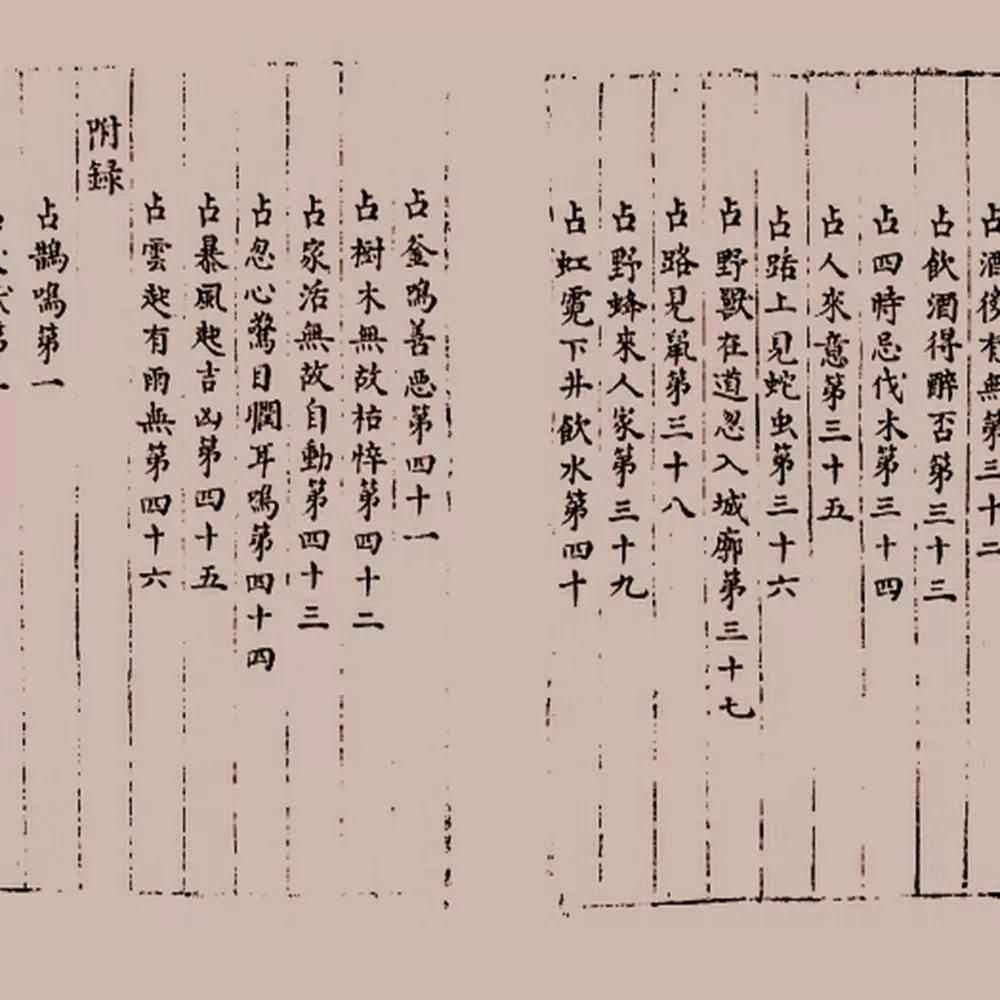 占酒後有無第三十二
占飲酒得醉否第三十三
占四時忌伐木第三十四
占人來意第三十五
占路上見蛇虫第三十六
占野獸在道忽入城廓第三十七
占路見鼠第三十八
占野蜂來人家第三十九
占虹霓下井飲水第四十
占釜鳴善惡第四十一
占樹木無故枯悴第四十二
占家活無故自動第四十三
占忽心驚目瞤耳鳴第四十四
占暴風起吉凶第四十五
占雲起有雨無第四十六
附録
占鵲鳴第一